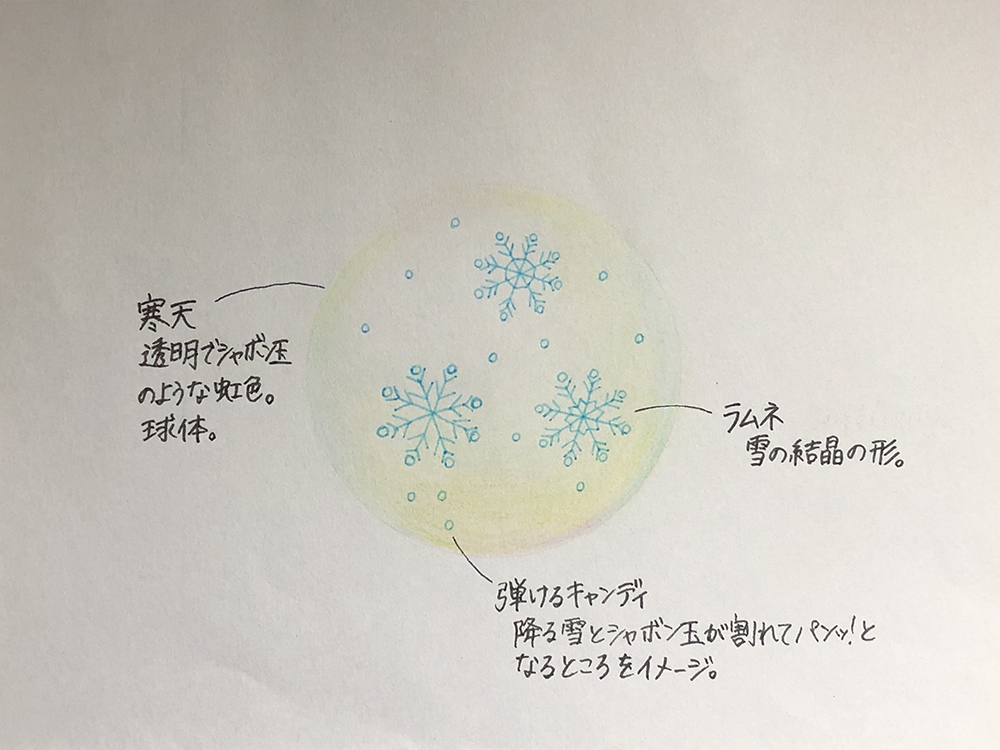 寒天
透明でシャボン玉
のような虹色。
球体。
ラムネ
雪の結晶の形。
弾けるキャンディ
降る雪とシャボン玉が割れてパンッ!と
なるところをイメージ。